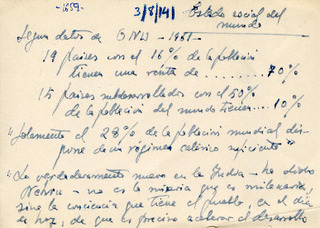 -1659-
3/8/141
Estado social del
mundo
Segun datos de ONU - 1951 -
19 paises con el 16% de la poblacion
tienen una renta de ........ 70%
15 paises subdesarrollados con el 50%
de la poblacion del mundo tienen... 10%
"Solamente el 28% de la poblacion mundial dis-
pone de un régimen calórico suficiente"
"Lo verdaderamente nuevo en la India - ha dicho
Nehru - no es la miseria que es milenaria,
sino la consciencia que tiene el pueblo, en el dia
de hoy, de que es preciso acelerar el desarrollo